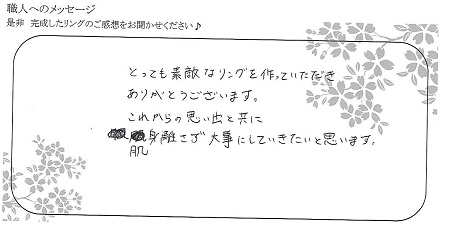 職人へのメッセージ
是非 完成したリングのご感想をお聞かせください♪
とっても素敵なリングを作っていただき
ありがとうございます。
これからの思い出と共に
肌身離さず大事にしていきたいと思います。